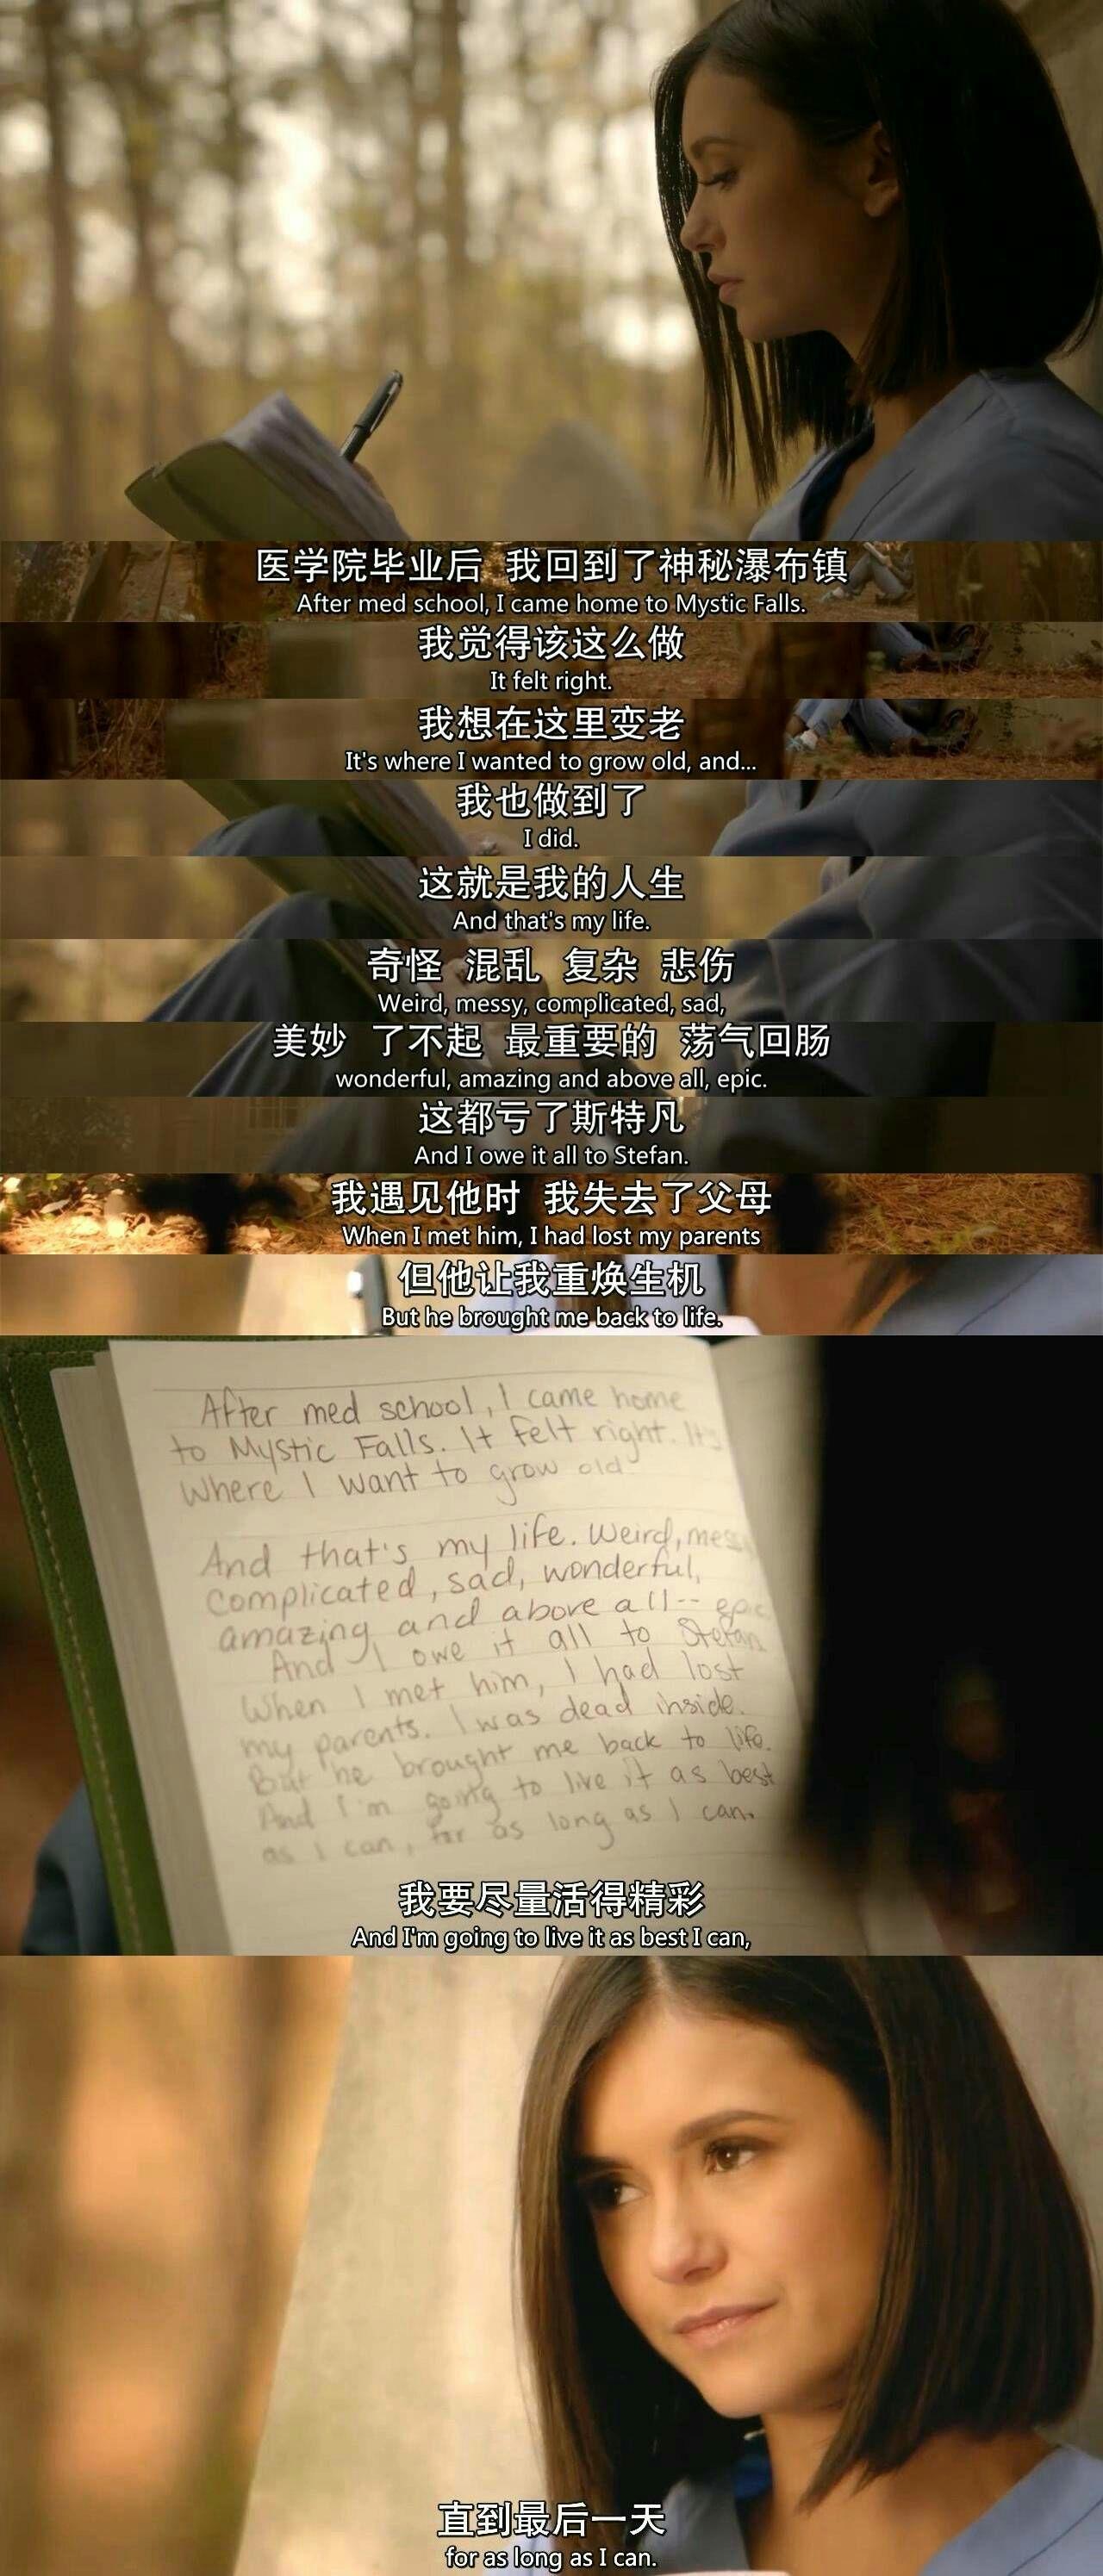 医学院毕业后 我回到了神秘瀑布镇
After med school, I came home to Mystic Falls.
我觉得该这么做
It felt right.
我想在这里变老
It's where I wanted to grow old, and...
我也做到了
I did.
这就是我的人生
And that's my life.
奇怪 混乱 复杂 悲伤
Weird, messy, complicated, sad,
美妙 了不起 最重要的 荡气回肠
wonderful, amazing and above all, epic.
这都亏了斯特凡
And I owe it all to Stefan.
我遇见他时 我失去了父母
When I met him, I had lost my parents
但他让我重焕生机
But he brought me back to life.
After med school, I came home
to Mystic Falls. It felt right. It's
where I want to grow old
And that's my life. Weird, mess
complicated, sad, wonderful,
amazing and above all-- epic
And I owe it all to Stefan
When I met him, I had lost
my parents. I was dead inside.
But he brought me back to life.
And I'm going to live it as best
as I can, for as long as I can.
我要尽量活得精彩
And I'm going to live it as best I can,
直到最后一天
for as long as I can.